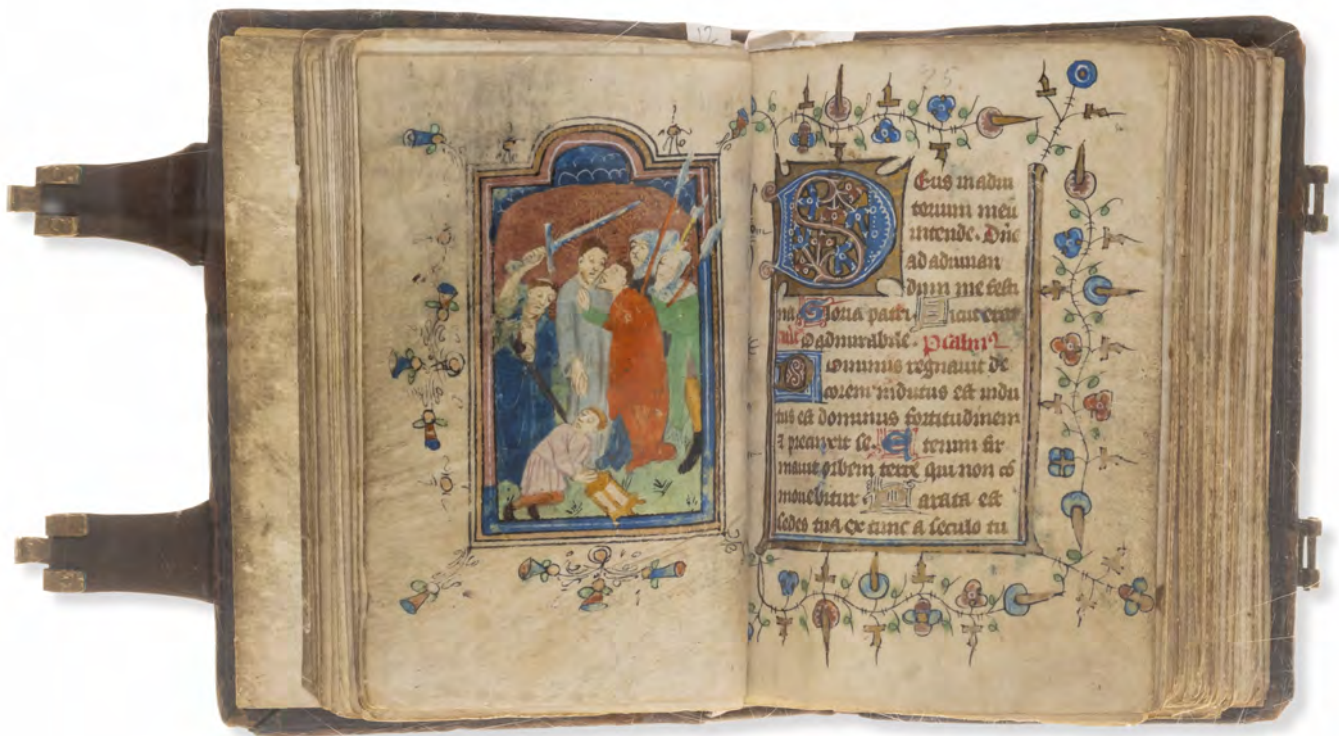 12
25
Deus in adiu
torium meū
intende. Dn̄e
ad adiuuan
dum me festi
na Gloria patri Sicut erat
O admirabile. Psalmꝰ
Dominus regnauit de
corem indutus est indu
tus est dominus fortitudinem
⁊ precinxit se. Etenim fir
mauit orbem terre qui non cō
mouebitur Parata est
sedes tua ex tunc a seculo tu